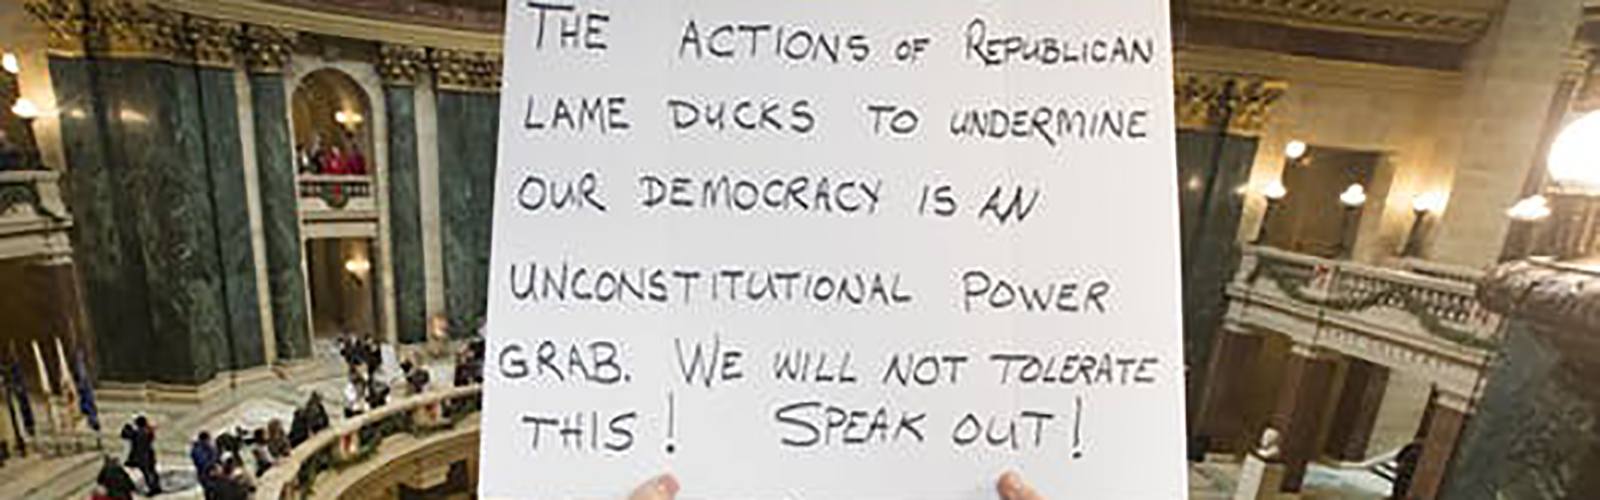 THE ACTIONS OF REPUBLICAN
LAME DUCKS TO UNDERMINE
OUR DEMOCRACY IS AN
UNCONSTITUTIONAL POWER
GRAB. WE WILL NOT TOLERATE
THIS! SPEAK OUT!